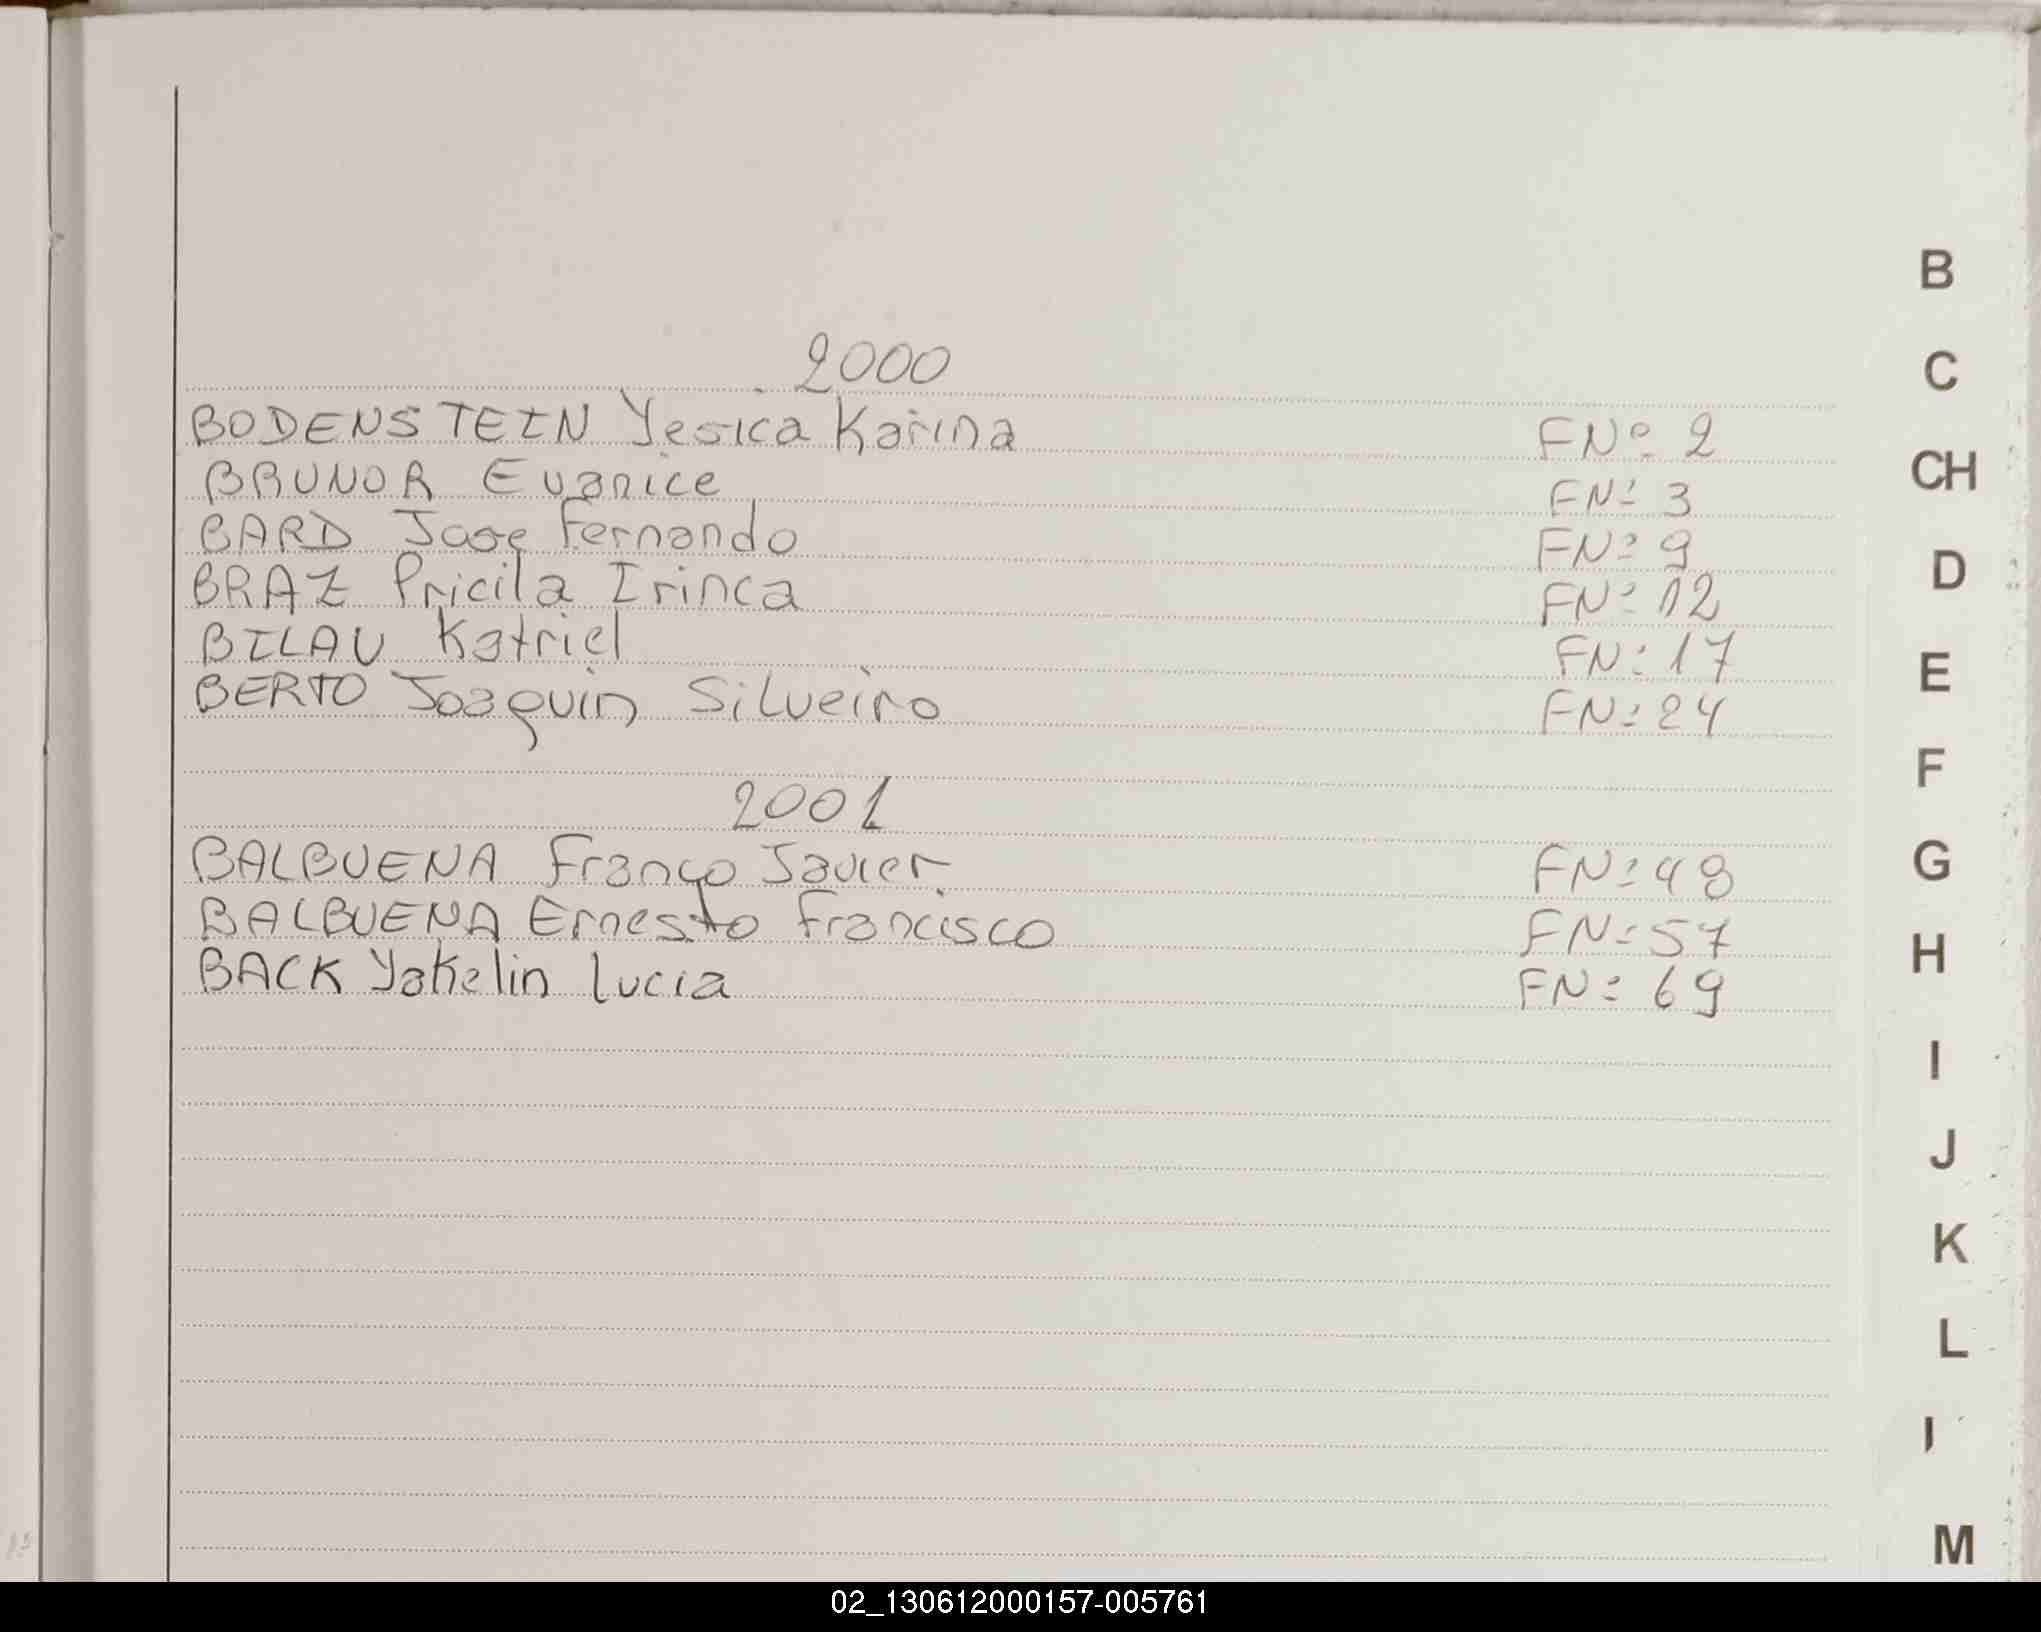 2000
BODENSTEIN Yesica Karina FNº 2
BRUNOR Evanice FNº 3
BARD Jose Fernando FNº 9
BRAZ Pricila Irinca FNº 12
BILAU Katriel FNº 17
BERTO Joaquin Silveiro FNº 24
2001
BALBUENA Franco Javier FNº 48
BALBUENA Ernesto Francisco FNº 57
BACK Yakelin Lucia FNº 69
B
C
CH
D
E
F
G
H
I
J
K
L
M
02_130612000157-005761